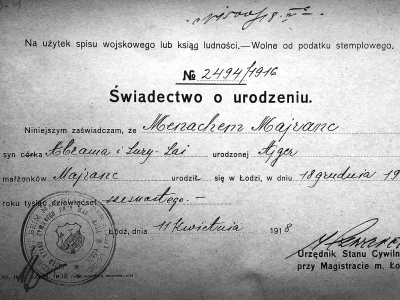 Na użytek spisu wojskowego lub ksiąg ludności.—Wolne od podatku stemplowego.
№ 2494/1916
Świadectwo o urodzeniu.
Niniejszym zaświadczam, że Menachem Majranc
syn córka Abrama i Sury-Łai urodzonej Ajger
małżonków Majranc urodził się w Łodzi, w dniu 18 grudnia 19
roku tysiąc dziewięćset szesnastego.—
Łódź, dnia 11 kwietnia 1918
Urzędnik Stanu Cywiln
przy Magistracie m. Ło